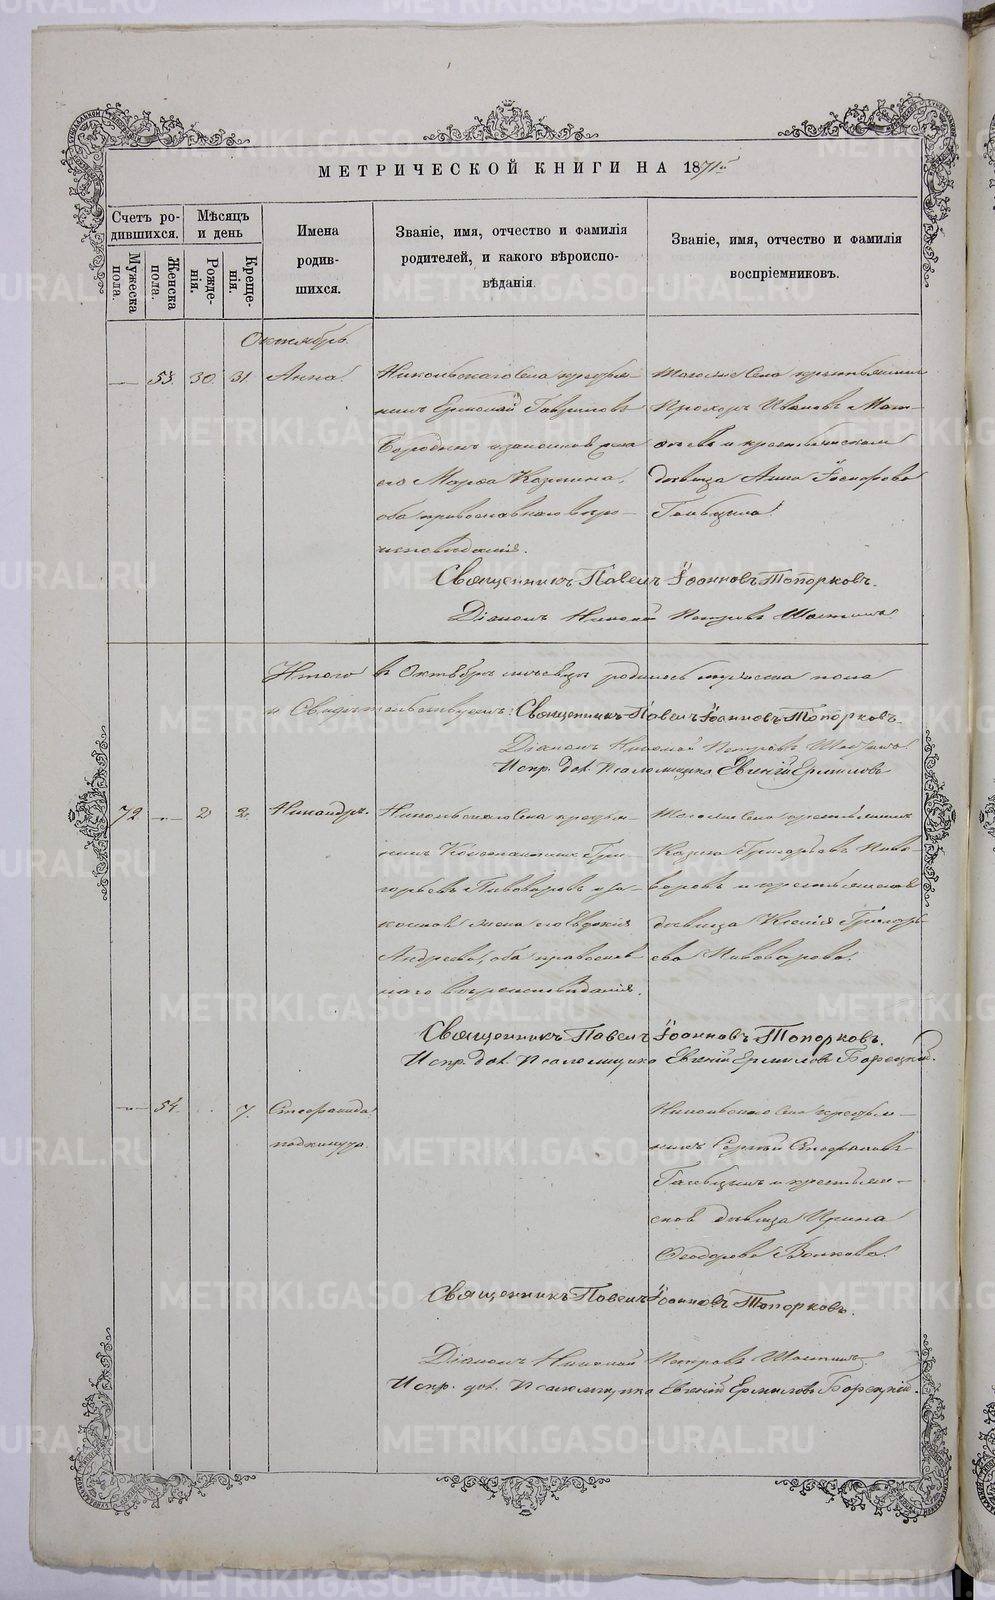 МЕТРИЧЕСКОЙ КНИГИ НА 1871й
Счетъ ро-
дившихся.
Мѣсяцъ
и день
Имена
родив-
шихся.
Званіе, имя, отчество и фамилія
родителей, и какого вѣроиспо-
вѣданія.
Званіе, имя, отчество и фамилія
воспріемниковъ.
Мужеска
пола.
Женска
пола.
Рожде-
нія.
Креще-
нія.
Октябрь.
53. 30. 31 Анна.
Никольскаго Села крестья-
нинъ Ермолай Гавриловъ
Бородинъ и законная жена
его Марѳа Козмина,
оба православнаго вѣро-
исповѣданія.
Тогоже Села крестьянинъ
Прохоръ Ивановъ
и крестьянская
дѣвица Анна
Голыцина.
Священникъ Павелъ Іоанновъ Топорковъ.
Діаконъ Николай Петровъ
Итого въ Октябрѣ мѣсяцѣ родилось мужеска пола
и Свидѣтельствуемъ: Священникъ Павелъ Іоанновъ Топорковъ.
Діаконъ Николай Петровъ
Испр. дол. Псаломщика Евгеній Ермиловъ
72 2 2. Никандръ.
Никольскаго Села крестья-
нинъ Константинъ Гри-
горьевъ Пивоваровъ и за-
конная жена его Евдокія
Андреева, оба православ-
наго вѣроисповѣданія.
Тогоже Села крестьянинъ
Козма Григорьевъ Пиво-
варовъ и крестьянская
дѣвица Ксенія Григорь-
ева Пивоварова.
Священникъ Павелъ Іоанновъ Топорковъ.
Испр. дол. Псаломщика Евгеній Ермиловъ Борецкій.
54. 7. Стефанида
подкинута.
Никольскаго Села крестья-
нинъ Сергѣй Стефановъ
Голыцинъ и крестьян-
ская дѣвица Ирина
Ѳеодорова Волкова.
Священникъ Павелъ Іоанновъ Топорковъ.
Діаконъ Николай Петровъ
Испр. дол. Псаломщика Евгеній Ермиловъ Борецкій.
METRIKI.GASO-URAL.RU